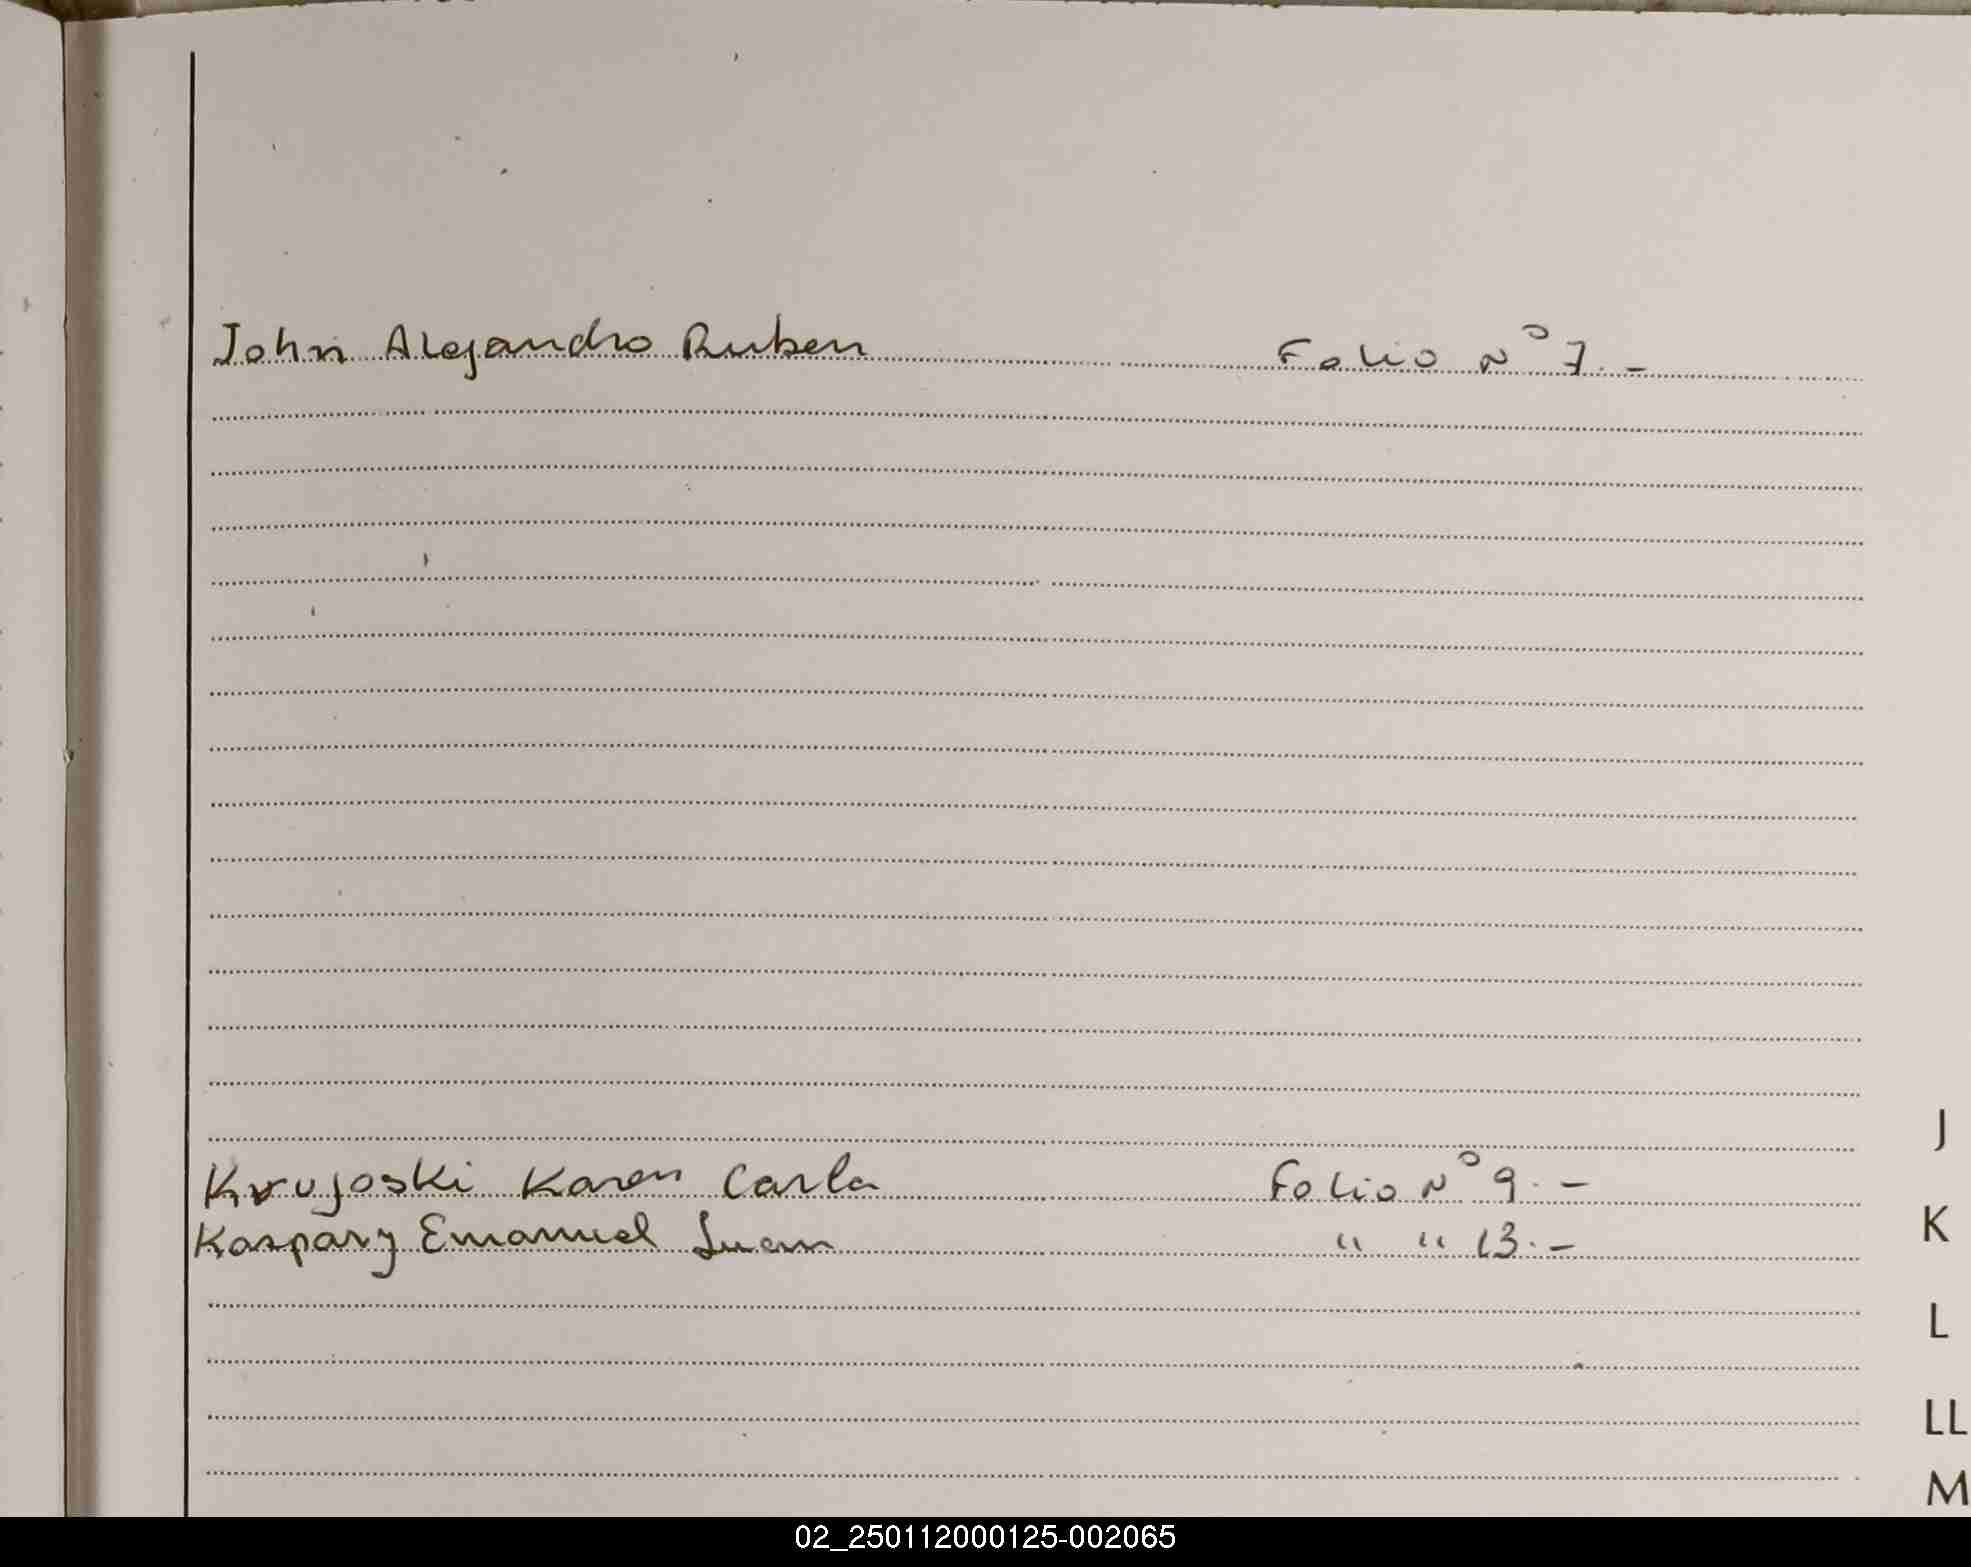 John Alejandro Ruben Folio Nº 7.-
Krujoski Karen Carla Folio Nº 9.-
Kaspary Emanuel Juan " " 13.-
J
K
L
LL
M
02_250112000125-002065